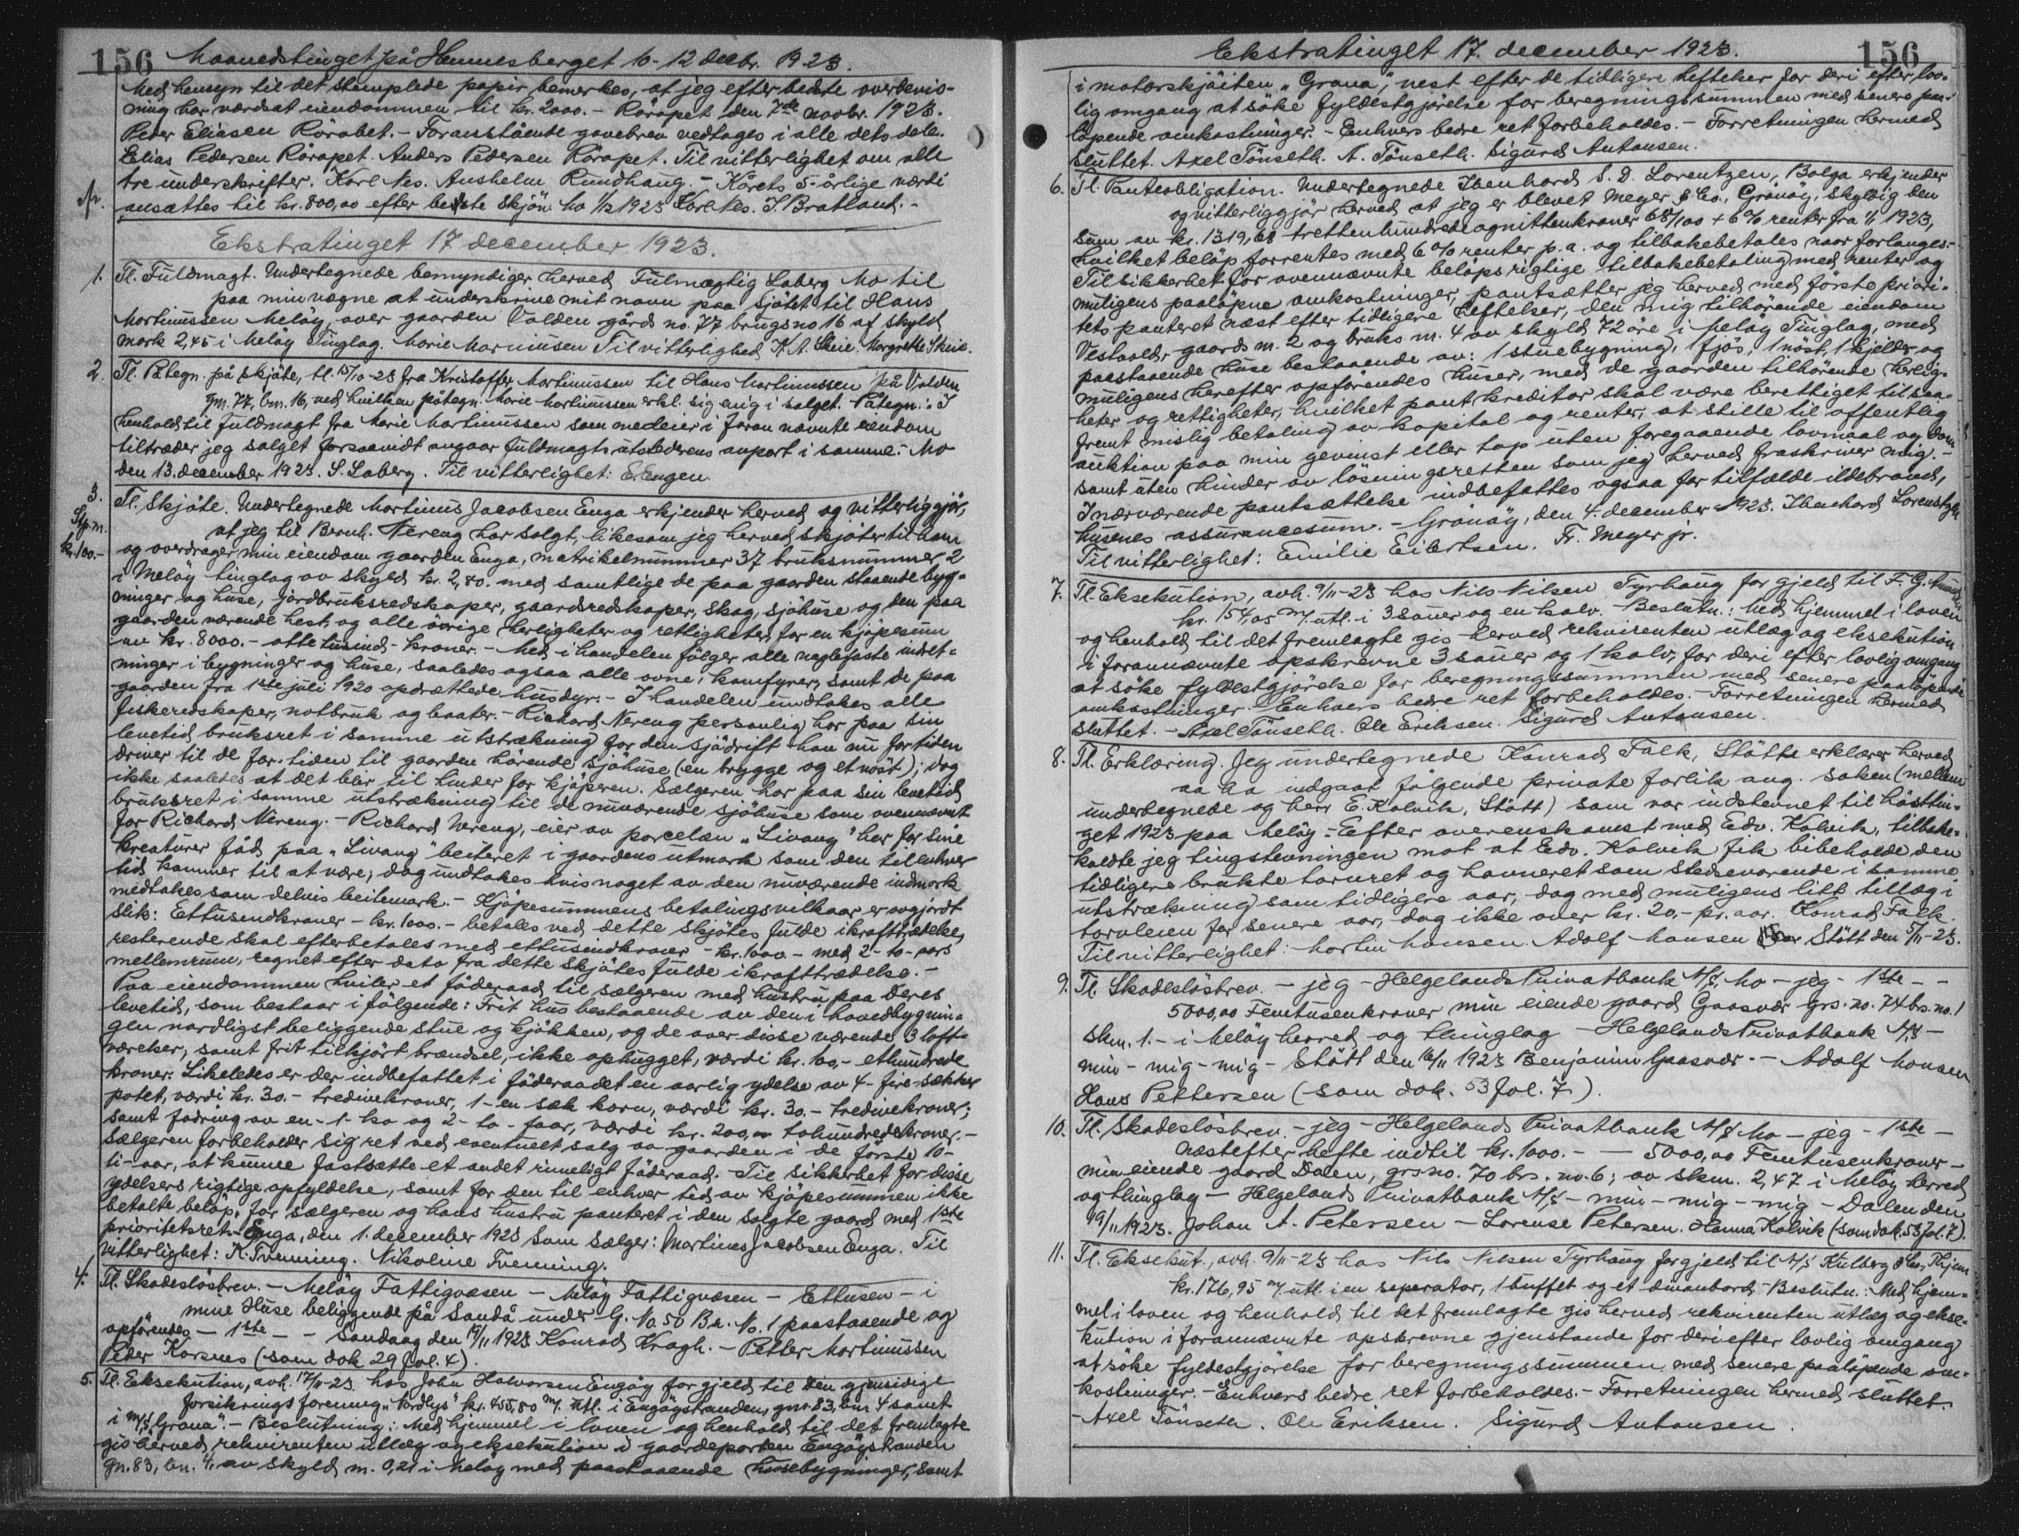 156 Maanedstinget på Hemnesberget 10-12 decbr. 1923.
Med hensyn til det stemplede papir bemerkes, at jeg efter bedste overbevis-
ning har værdsat eiendommen til kr. 2000.- Röröpet den 7de novbr. 1923.
Peder Eliasen Rörobet.- Foranstående gavebrev vedtages i alle dets dele.
Elias Pedersen Röröpet. Anders Pedersen Röröpet. Til vitterlighet om alle
tre underskrifter. Karl Nes. Anshelm Rundhaug. - Kårets 5-årlige værdi
ansættes til kr. 800,00 efter bedste skjön. Mo 1/12 1923 Karl Nes. J. Bratland.-
Ekstratinget 17 december 1923.
1. Tl. Fuldmagt. Undertegnede bemyndiger herved Fulmægtig Laberg Mo til
paa min vegne at underskrive mit navn paa sjötet til Hans
Martinussen Meløy over gaarden Valden gårds no. 77 brugsno 16 af skyld
mark 2,45 i Meløy Tinglag. Marie Marinusen Til vitterlighed K. A. Skeie. Margrethe Skeie.
2. Tl. Pategn. på skjøte, tl. 15/10-23 fra Kristoffer Martinussen til Hans Martinussen på Valden
gn. 77, bn. 16, ved hvilken påtegn. Marie Martinussen erkl. sig enig i salget. Påtegn.: I
henhold til fuldmagt fra Marie Martinussen som medeier i foran nævnte eiendom
tiltræder jeg salget forsaavidt angaar fuldmagtsutstederens anpart i samme. Mo
den 13. december 1923. S. Laberg. Til vitterlighet: E. Engen.
3. Tl. Skjøte. Undertegnede Martinus Jacobsen Enga erkjender herved og vitterliggjör,
Stp. m. at jeg til Bernh. Nereng har solgt, likesom jeg herved skjøter til ham
kr. 100.- og overdrager min eiendom gaarden Enga, matrikelnummer 37 bruksnummer 2
i Meløy tinglag av skyld kr. 2,80. med samtlige de paa gaarden staaende byg-
ninger og huse, jordbruksredskaper, gaardsredskaper, skog, sjöhuse og den paa
gaarden værende hest, og alle övrige herligheter og rettigheter, for en kjøpesum
av kr. 8000.- otte tusind- kroner.- Med i handelen fölger alle naglefaste indret-
ninger i bygninger og huse, saaledes ogsaa alle ovne, komfyrer, samt de paa
gaarden fra 1ste juli 1920 opdrættede husdyr.- I handelen undtakes alle
fiskeredskaper, notbruk og baater.- Richard Nereng personlig har paa sin
levetid bruksret i samme utstrækning for den sjödrift han nu for tiden
driver til de for tiden til gaarden hörende sjöhuse (en brygge og et nöst); dog
ikke saaledes at det blir til hinder for kjøperen. Sælgeren har paa sin levetid
bruksret i samme utstrækning til de nuværende sjöhuse som ovennævnt
for Richard Nereng.- Richard Nereng, eier av parcelen "Livang" har for sine
kreaturer fåd paa "Livang" beiteret i gaardens utmark som den til enhver
tid kommer til at være; dog undtakes hvis noget av den nuværende indmark
medtakes som delvis beitemark.- Kjøpesummens betalingsvilkaar er avgjordt
slik: Ettusendkroner - kr. 1000.- betales ved dette skjøtes fulde ikrafttrædelse,
resterende skal efterbetales med ettusindkroner - kr. 1000.- med 2- to- aars
mellemrum, regnet efter dato fra dette skjøtes fulde ikrafttrædelse.-
Paa eiendommen hviler et föderaad til sælgeren med hustru paa deres
levetid, som bestaar i fölgende: Frit hus bestaaende av den i hovedbygnin-
gen nordligst beliggende stue og kjökken, og de over disse værende 3 loft-
værelser, samt frit tilkjört brændsel, ikke ophugget, værdi kr. 100,- ethundrede
kroner. Likeledes er der indbefattet i föderaadet en aarlig ydelse av 4- fire- sækker
potet, værdi kr. 30.- tredivekroner, 1- en sæk korn, værdi kr. 30.- tredivekroner;
samt fodring av en- 1- ko og 2- to- faar, værdi kr. 200,00 tohundredekroner.-
Sælgeren forbeholder sig ret ved eventuelt salg av gaarden i de förste 10-
ti- aar, at kunne fastsætte et andet rimeligt föderaad.- Til sikkerhet for disse
ydelsers rigtige opfyldelse, samt for den til enhver tid av kjøpesummen ikke
betalte belöp, for sælgeren og hans hustru panteret i den solgte gaard med 1ste
prioritetsret.- Enga, den 1. december 1923 som sælger: Martines Jacobsen Enga. Til
vitterlighet: K. Trenning. Nikoline Trenning.
4. Tl. Skadeslösbrev.- Meløy Fattigvæsen - Meløy Fattigvæsen - Ettusen - i
mine Huse beliggende på Sandå under G. No. 50 Br. No. 1 paastaaende og
opförendes - 1ste - - Sandaag den 19/11 1923 Konrad Kragh. - Petter Martinussen
Peder Korsnes (som dok 29 fol. 4).
5. Tl. Eksekution, avh. 17/11-23. hos John Halvorsen Engöy for gjeld til den gjensidige
forsikringsforening "Nordlys" kr. 455,80 m/. Utl. i Engöystranden, gnr. 83, bnr. 4 samt
i m/s "Grana".- Beslutning: Med hjemmel i loven og henhold til det fremlagte
gis herved rekvirenten utlæg og eksekution i gaardeparten Engöystranden
gn. 83, bn. 4, av skyld m. 0,21 i Meløy med paastaaende husebygninger, samt
Ekstratinget 17. december 1923. 156
i motorskjøiten "Grana", nest efter de tidligere heftelser for deri efter lov-
lig omgang at söke fyldestgjørelse for beregningssummen med senere paa-
löpende omkostninger.- Enhvers bedre ret forbeholdes.- Forretningen hermed
sluttet. Axel Tönseth. A. Tönseth. Sigurd Antonsen.
6. Tl. Panteobligation. Undertegnede Ibenhard S. D. Lorentzen, Bolga erkjender
og vitterliggjör herved at jeg er blevet Meyer & Co., Grönöy, skyldig den
sum av kr. 1319,68 trettenhundredeognittenkroner 68/100 + 6% renter fra 1/1 1923,
hvilket belöp forrentes med 6% renter p. a. og tilbakebetales naar forlanges.-
Til sikkerhet for ovennævnte belöps rigtige tilbakebetaling med renter og
muligens paalöpne omkostninger, pantsætter jeg herved med förste priori-
tets panteret næst efter tidligere heftelser, den mig tilhörende eiendom
Vestvold, gaards nr. 2 og bruks nr. 4 av skyld 72 öre i Meløy Tinglag, med
paastaaende huse bestaaende av: 1 stuebygning, 1 fjös, 1 nöst, 1 kjelder og
muligens herefter opförendes huser, med de gaarden tilhörende herlig-
heter og rettigheter, hvilket pant kreditor skal være berettiget til saa-
fremt mislig betaling av kapital og renter, at stille til offentlig
auktion paa min gevinst eller tap uten foregaaende lovmaal og dom
samt uten hinder av lösningsretten som jeg herved fraskriver mig.-
I nærværende pantsættelse indbefattes ogsaa for tilfælde ildebrand,
husenes assurancesum.- Grönöy, den 4. december 1923. Ibenhard Lorentzen
Til vitterlighet: Emilie Eilertsen. Fr. Meyer jr.
7. Tl. Eksekution, avh. 9/11-23 hos Nils Nilsen Tyrhaug for gjeld til F. G.
kr. 154,05 m/. utl. i 3 sauer og en kalv.- Beslutn.: Med hjemmel i loven
og henhold til det fremlagte gis herved rekvirenten utlæg og eksekution
i forannævnte opskrevne 3 sauer og 1 kalv, for deri efter lovlig omgang
at söke fyldestgjørelse for beregningssummen med senere paalöpende
omkostninger. Enhvers bedre ret forbeholdes.- Forretningen hermed
sluttet.- Axel Tönseth. Ole Eriksen. Sigurd Antonsen.
8. Tl. Erklæring. Jeg undertegnede Konrad Falk, Stött erklærer herved
aa ha indgaat fölgende private forlik ang. saken (mellem
undertegnede og herr E. Kalvik, Stött) som var indstevnet til hösttin-
get 1923 paa Meløy.- Efter overenskomst med Edv. Kalvik, tilbake-
kaldte jeg tingstevningen mot at Edv. Kalvik fik bibeholde den
tidligere brukte torvret og havneret som stedsevarende i samme
utstrækning som tidligere aar, dog med muligens litt tillæg i
torvleien for senere aar, dog ikke over kr. 20,- pr. aar. Konrad Falk.
Til vitterlighet: Martin Hansen. Adolf Monsen Stött den 5/11-23.
9. Tl. Skadeslösbrev.- jeg - Helgelands Privatbank A/S, Mo - jeg - 1ste - -
5000,00 Femtusenkroner min eiende gaard Gaasvær grs. no. 74 brs. no. 1
skm. 1.- i Meløy herred og thinglag - Helgelands Privatbank A/S -
min - mig - mig - Stött den 16/11 1923 Benjamin Gaasvær.- Adolf Monsen
Hans Pettersen (som dok. 53 fol. 7).
10. Tl. Skadeslösbrev.- jeg - Helgelands Privatbank A/S Mo - jeg - 1ste -
næstefter hefte indtil kr. 1000.- - 5000,00 Femtusenkroner -
min eiende gaard Dalen, grs no. 70 brs. no. 6; av skm. 2,47 i Meløy herred
og thinglag - Helgelands Privatbank A/S - min - mig - mig - Dalen den
19/11 1923. Johan A. Petersen - Lorense Petersen. Hanna Kalvik (som dok. 53 fol. 7).
11. Tl. Eksekut., avh. 9/11-23 hos Nils Nilsen Tyrhaug for gjeld til A/S Kulberg & Co,
kr. 176,95 m/. utl. i en seperator, 1 buffet og et divanbord.- Beslutn.: Med hjem-
mel i loven og henhold til det fremlagte gis herved rekvirenten utlæg og ekse-
kution i forannævnte opskrevne gjenstande for deri efter lovlig omgang
at söke fyldestgjørelse for beregningssummen med senere paalöpende om-
kostninger.- Enhvers bedre ret forbeholdes.- Forretningen hermed sluttet.
- Axel Tönseth. Ole Eriksen. Sigurd Antonsen.